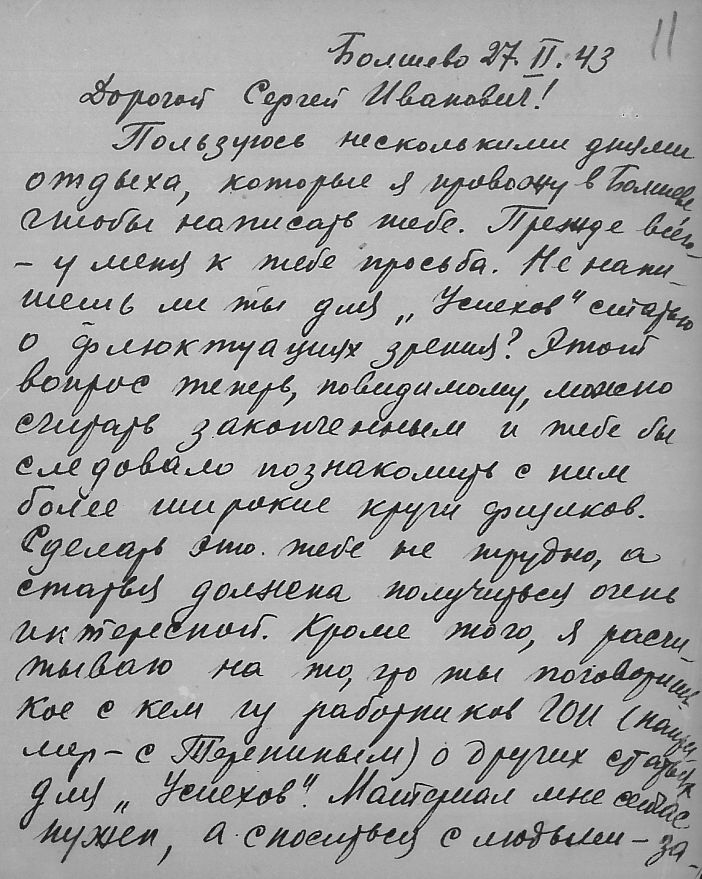 11
Болшево 27.II.43
Дорогой Сергей Иванович!
Пользуюсь несколькими днями
отдыха, которые я провожу в Болшеве
чтобы написать тебе. Прежде всего
– у меня к тебе просьба. Не напи-
шешь ли ты для „Успехов“ статью
о флюктуациях зрения? Этот
вопрос теперь, повидимому, можно
считать законченным и тебе бы
следовало познакомить с ним
более широкие круги физиков.
Сделать это тебе не трудно, а
статья должна получиться очень
интересной. Кроме того, я расчи-
тываю на то, что ты поговоришь
кое с кем из работников ГОИ (напри-
мер – с Терениным) о других статьях
для „Успехов“. Материал мне сейчас
нужен, а сноситься с людьми – за-